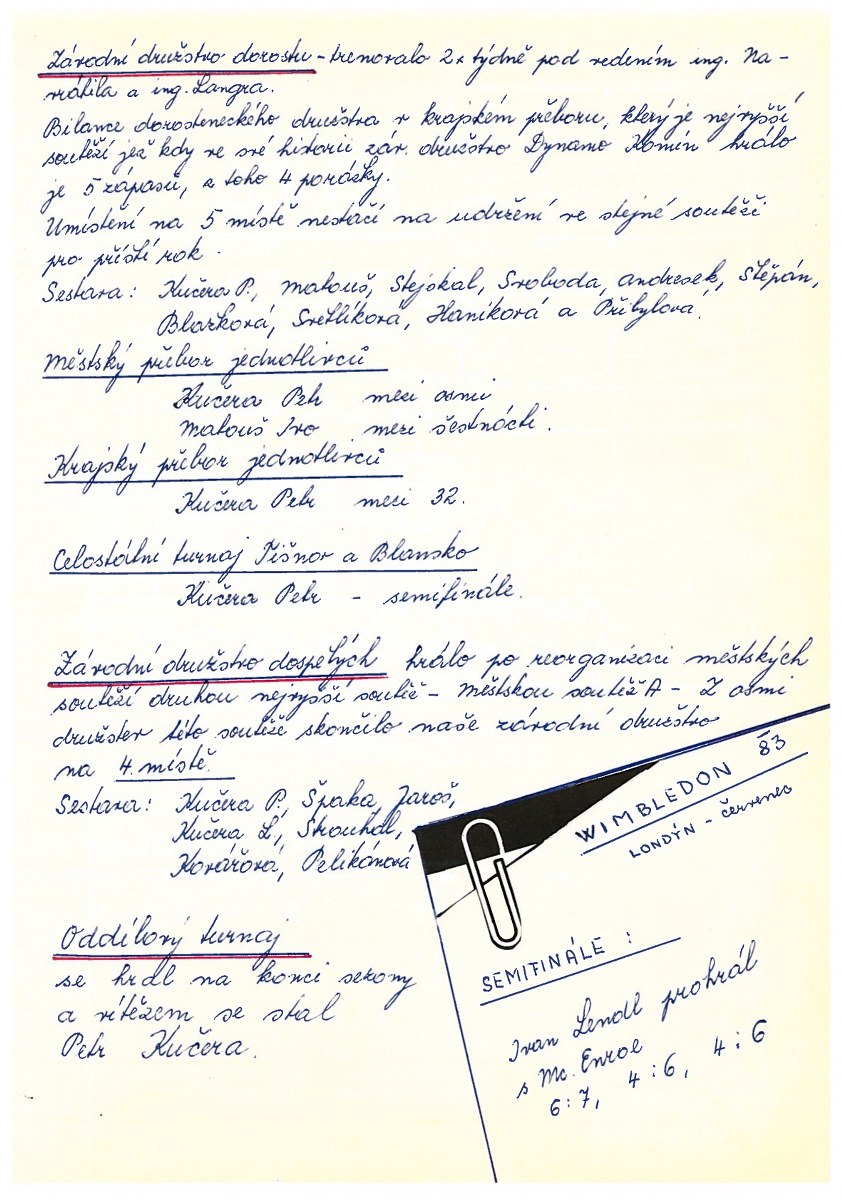 Závodní družstvo dorostu - trenovalo 2x týdně pod vedením ing. Na-
vrátila a ing. Langra.
Bilance dorosteneckého družstva v krajském přeboru, který je nejvyšší
soutěží jež kdy ve své historii záv. družstvo Dynamo Komín hrálo
je 5 zápasů, z toho 4 porážky.
Umístění na 5 místě nestačí na udržení ve stejné soutěži
pro příští rok.
Sestava: Kučera P., Matouš, Stejskal, Svoboda, Andresek, Štěpán,
Blažková, Světlíková, Haníková a Přibylová.
Městský přebor jednotlivců
Kučera Petr mezi osmi
Matouš Ivo mezi šestnácti.
Krajský přebor jednotlivců
Kučera Petr mezi 32.
Celostátní turnaj Tišnov a Blansko
Kučera Petr - semifinále.
Závodní družstvo dospělých hrálo po reorganizaci městských
soutěží druhou nejvyšší soutěž - Městskou soutěž A - Z osmi
družstev této soutěže skončilo naše závodní družstvo
na 4. místě.
Sestava: Kučera P., Špaka, Jaroš,
Kučera L., Strouhal,
Kovářová, Pelikánová
Oddílový turnaj
se hrál na konci sezony
a vítězem se stal
Petr Kučera.
WIMBLEDON 83
LONDÝN - červenec
SEMIFINÁLE :
Ivan Lendl prohrál
s Mc. Enroe
6:7, 4:6, 4:6